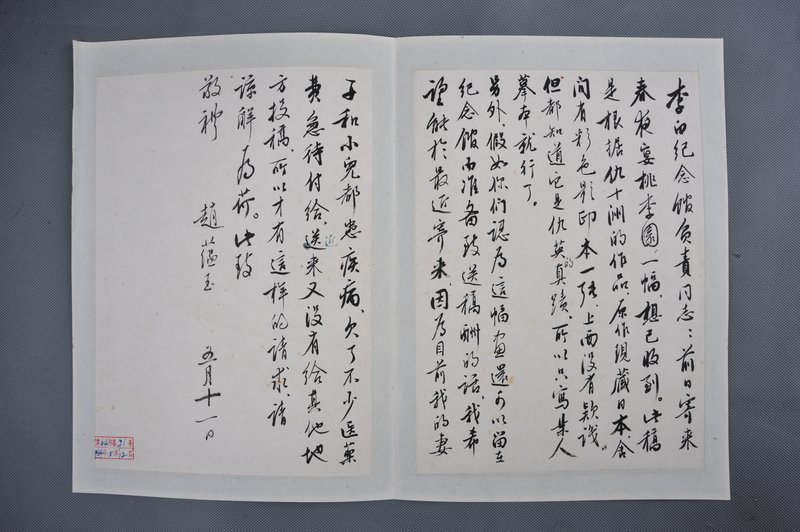 李白纪念馆负责同志：前日寄来
春夜宴桃李園一幅，想已收到。此稿
是根据仇十洲的作品原作现藏日本舍
间有彩色影印本一張，上面没有款識。
但都知道它是仇英的真蹟，所以只寫某人
摹本就行了。
另外假如你们認為這幅畫還可以留在
纪念馆而准备致送稿酬的话，我希
望能於最近寄来，因為目前我的妻
子和小兒都患疾病，欠了不少医藥
费急待付给，近来又没有给其他地
方投稿，所以才有這样的请求，请
諒解為荷。此致
敬禮
趙蕴玉
五月十一日